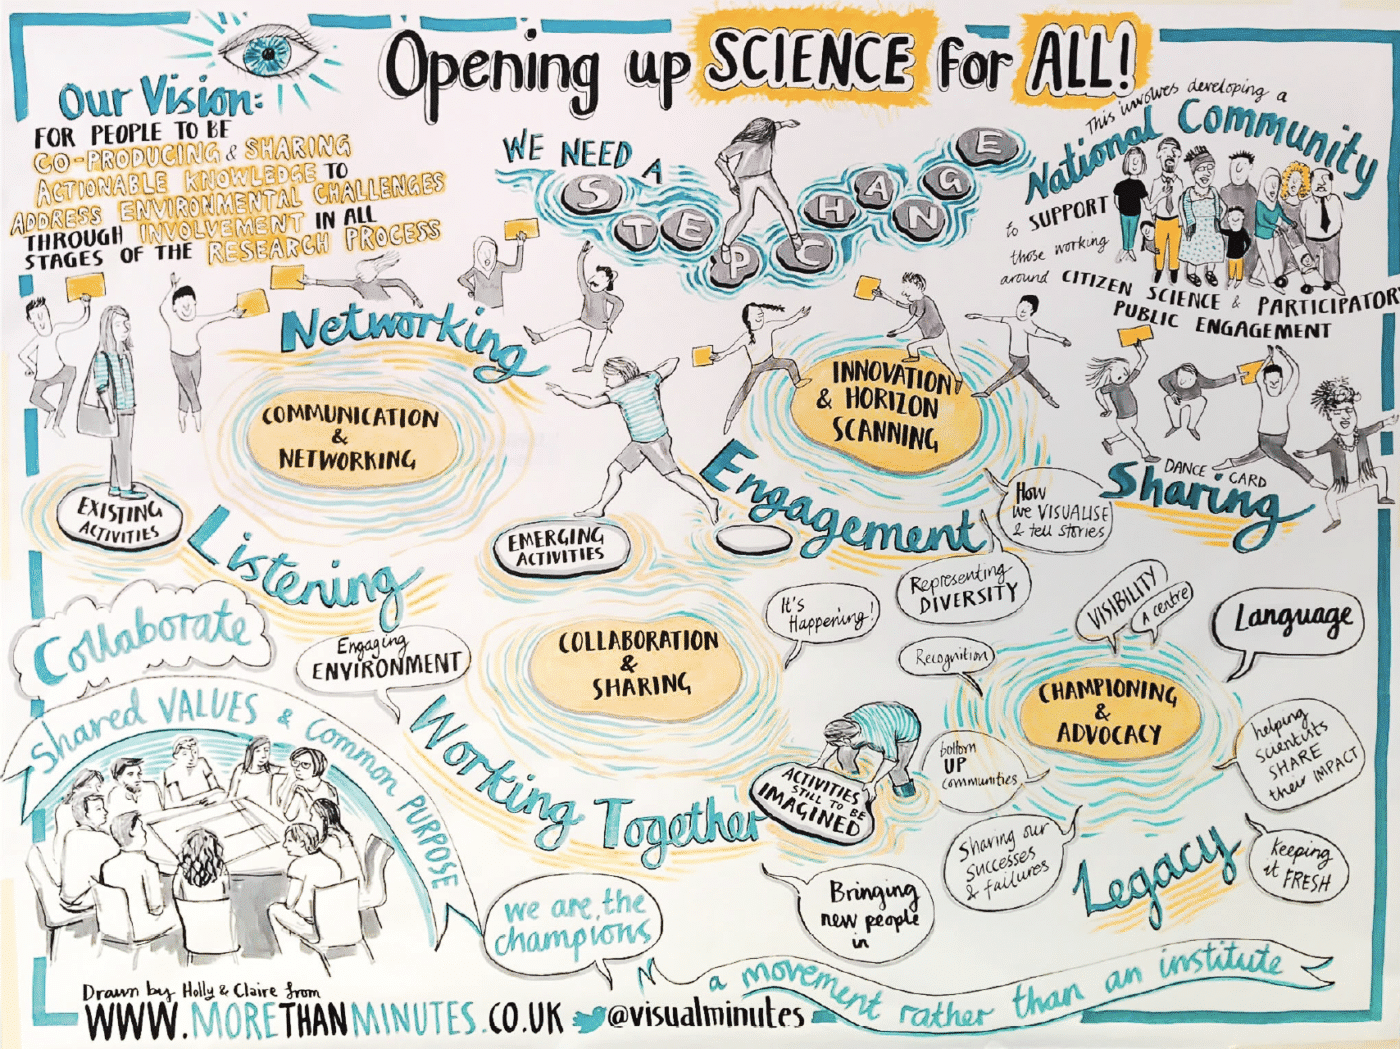 Opening up SCIENCE for ALL!
Our Vision:
FOR PEOPLE TO BE
CO-PRODUCING & SHARING
ACTIONABLE KNOWLEDGE TO
ADDRESS ENVIRONMENTAL CHALLENGES
THROUGH INVOLVEMENT IN ALL
STAGES OF THE RESEARCH PROCESS
WE NEED A
STEP CHANGE
This involves developing a
National Community
to SUPPORT
those working
around CITIZEN SCIENCE & PARTICIPATORY
PUBLIC ENGAGEMENT
Networking
COMMUNICATION
&
NETWORKING
INNOVATION
& HORIZON
SCANNING
EXISTING
ACTIVITIES
Listening
EMERGING
ACTIVITIES
Engagement
DANCE CARD
Sharing
How
we VISUALISE
& tell stories
Representing
DIVERSITY
It's
Happening!
VISIBILITY
A centre
Language
Recognition
Collaborate
Engaging
ENVIRONMENT
COLLABORATION
&
SHARING
CHAMPIONING
&
ADVOCACY
Shared VALUES & Common PURPOSE
Working Together
ACTIVITIES
STILL TO BE
IMAGINED
bottom
UP
communities
helping
scientists
SHARE
their IMPACT
Sharing our
successes
& failures
Legacy
keeping
it FRESH
Bringing
new people
in
we are the
champions
a movement rather than an institute
Drawn by Holly & Claire from
WWW.MORETHANMINUTES.CO.UK @visualminutes